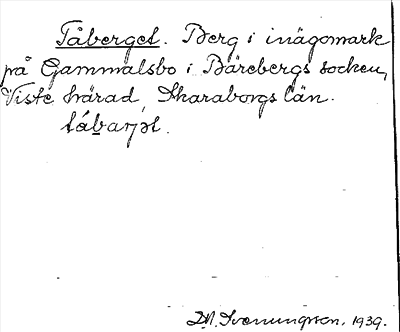 Tåberget. Berg i inägomark
på Gammalsbo i Bärebergs socken,
Viste härad, Skaraborgs län.
D.N. Svenungsson. 1939.